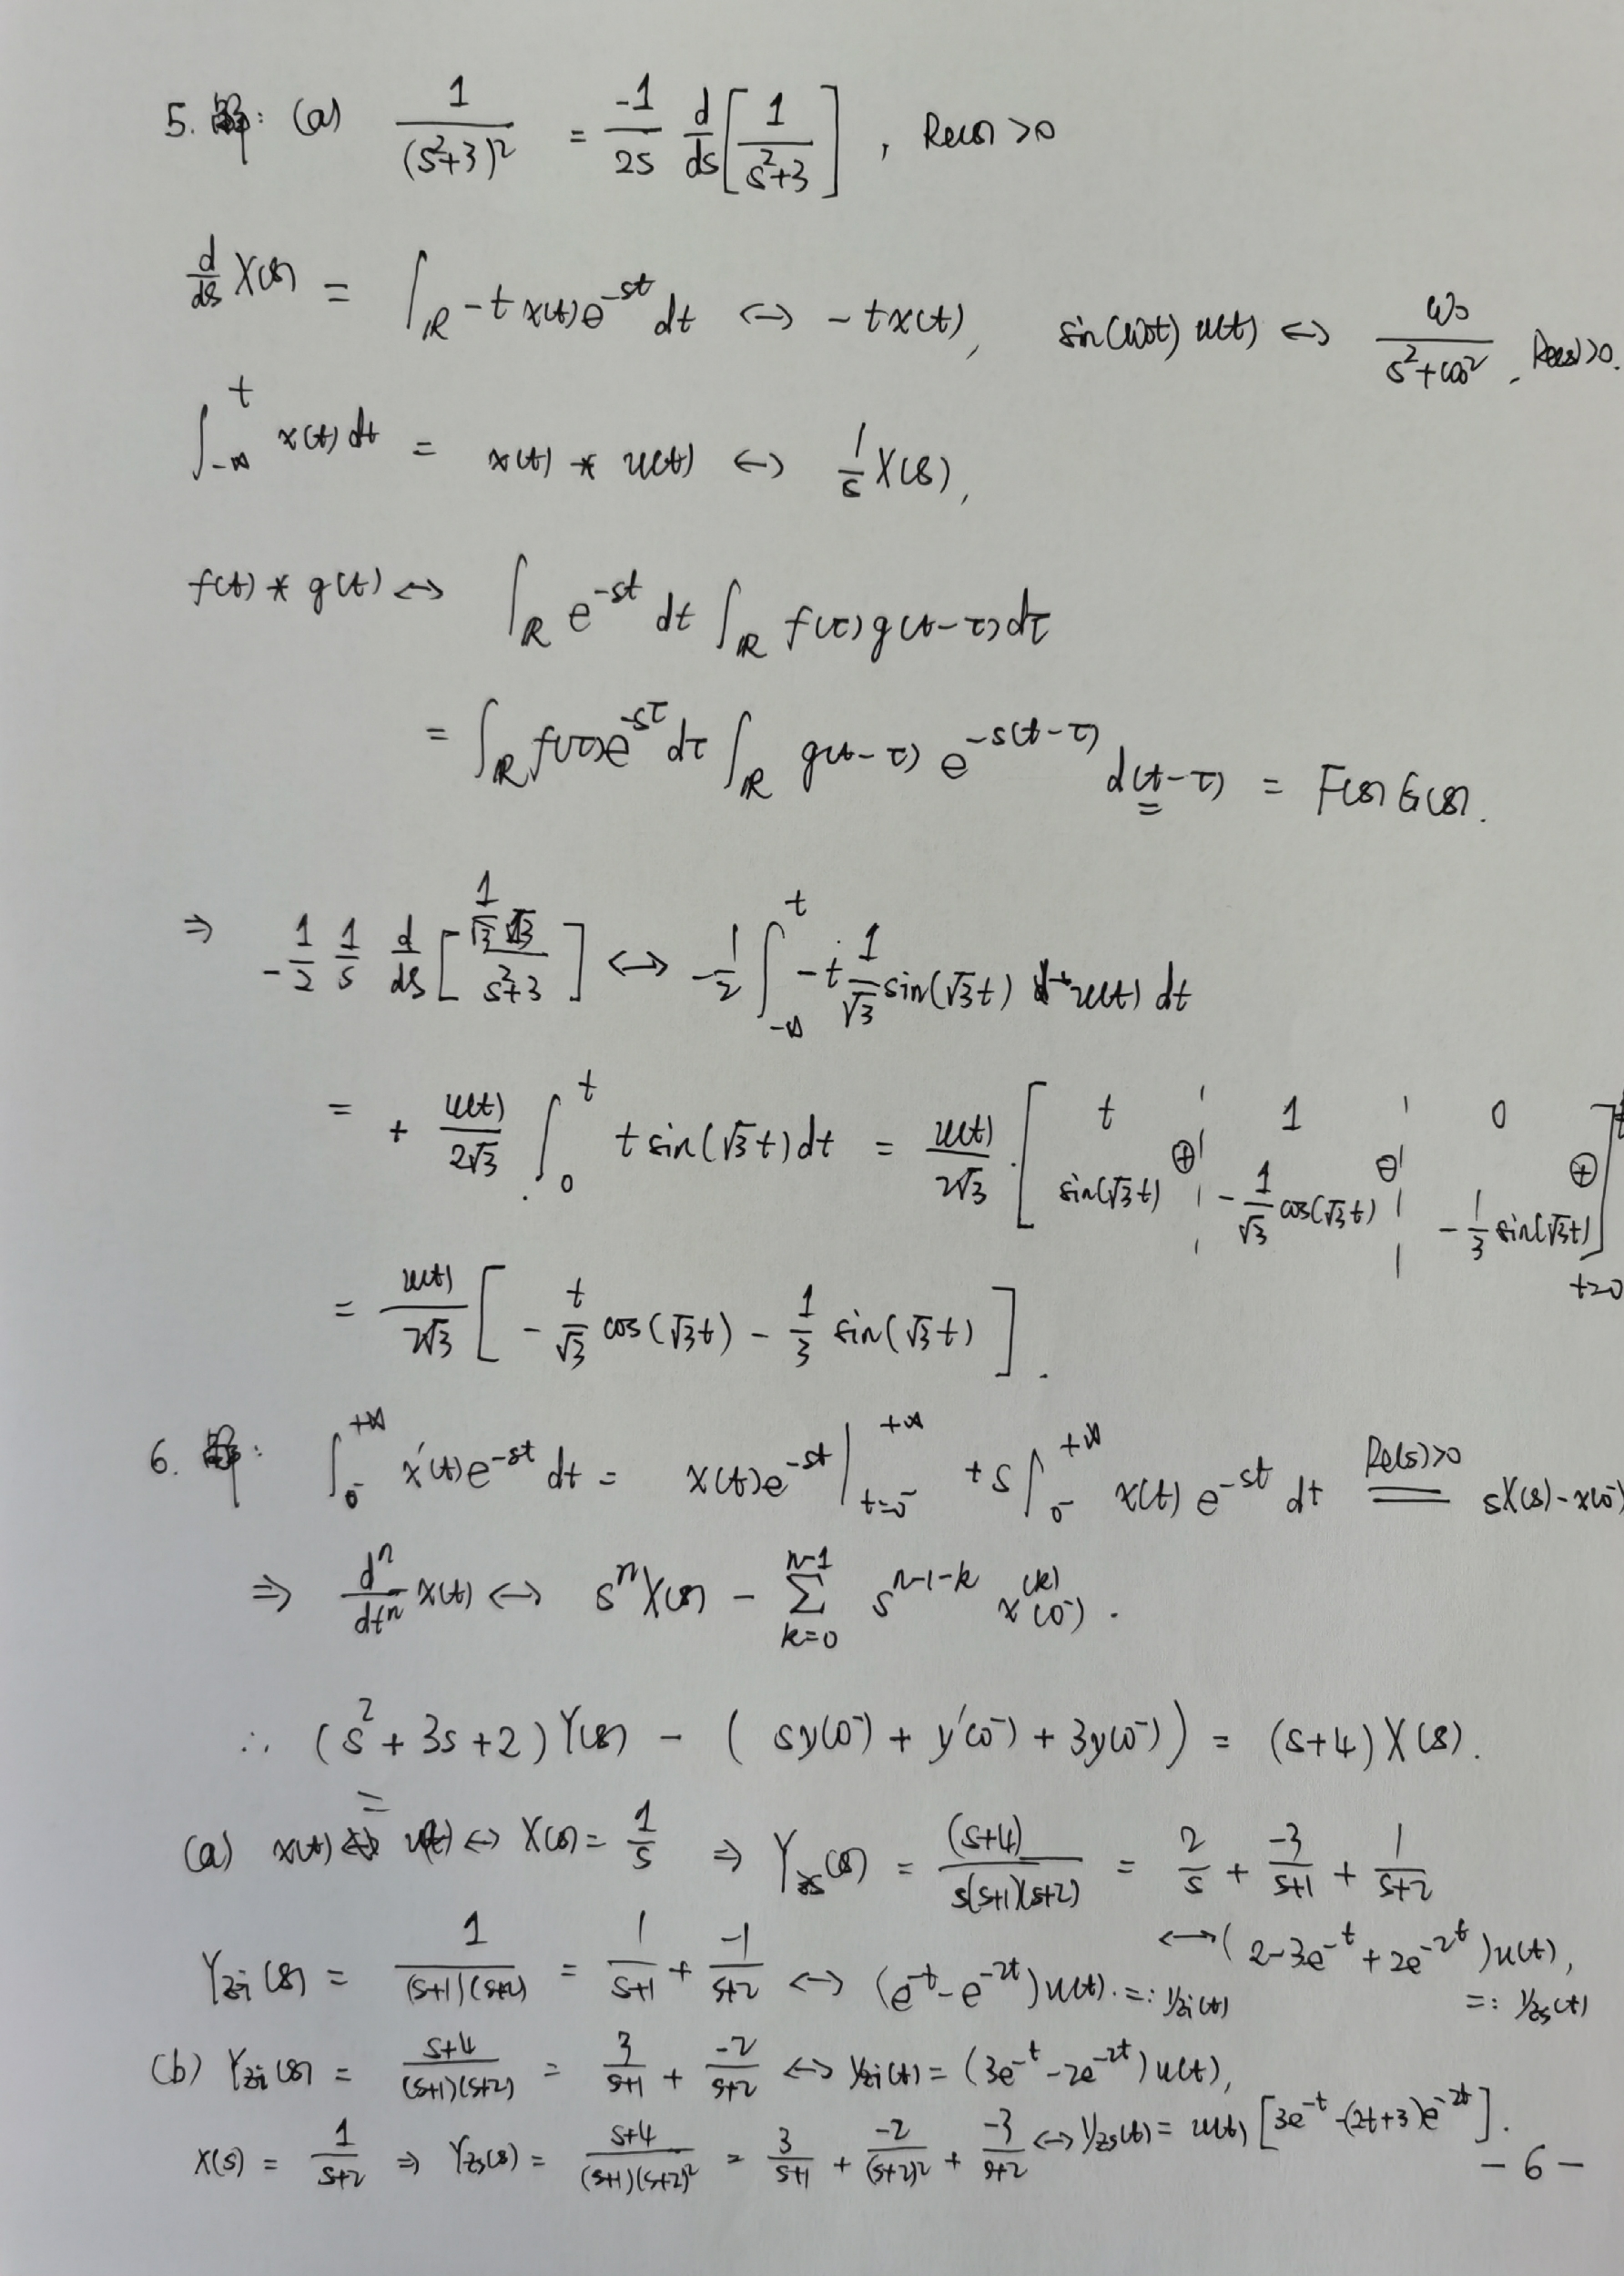 5. 解: (a) 1/(s²+3)² = -1/2s d/ds[1/(s²+3)], Re(s)>0
d/ds X(s) = ∫_ℝ -t x(t)e^{-st} dt ↔ -tx(t), sin(ω₀t) u(t) ↔ ω₀/(s²+ω₀²), Re(s)>0.
∫_{-∞}^{t} x(t) dt = x(t) * u(t) ↔ 1/s X(s),
f(t) * g(t) ↔ ∫_ℝ e^{-st} dt ∫_ℝ f(τ)g(t-τ)dτ
= ∫_ℝ f(τ)e^{-sτ} dτ ∫_ℝ g(t-τ) e^{-s(t-τ)} d(t-τ) = F(s)G(s).
⇒ -1/2 1/s d/ds[(1/√3 √3)/(s²+3)] ↔ -1/2 ∫_{-∞}^{t} -t 1/√3 sin(√3t) u(t) dt
= + u(t)/2√3 ∫_0^t t sin(√3t)dt = u(t)/2√3 · [t ¦ 1 ¦ 0 ⊕ ⊖ ⊕ sin(√3t) ¦ -1/√3 cos(√3t) ¦ -1/3 sin(√3t)]_{t=0}^{t}
= u(t)/2√3 [-t/√3 cos(√3t) - 1/3 sin(√3t)].
6. 解: ∫_{0⁻}^{+∞} x'(t)e^{-st} dt = x(t)e^{-st}|_{t=0⁻}^{+∞} + s∫_{0⁻}^{+∞} x(t) e^{-st} dt =(Re(s)>0)= sX(s)-x(0⁻)
⇒ dⁿ/dtⁿ x(t) ↔ sⁿX(s) - Σ_{k=0}^{n-1} s^{n-1-k} x^{(k)}(0⁻).
∴ (s²+3s+2)Y(s) - (sy(0⁻) + y'(0⁻) + 3y(0⁻)) = (s+4)X(s).
(a) x(t) = u(t) ↔ X(s) = 1/s ⇒ Y_{zs}(s) = (s+4)/(s(s+1)(s+2)) = 2/s + -3/(s+1) + 1/(s+2)
↔ (2-3e^{-t}+2e^{-2t})u(t),
=: y_{zs}(t)
Y_{zi}(s) = 1/((s+1)(s+2)) = 1/(s+1) + -1/(s+2) ↔ (e^{-t}-e^{-2t})u(t). =: y_{zi}(t)
(b) Y_{zi}(s) = (s+4)/((s+1)(s+2)) = 3/(s+1) + -2/(s+2) ↔ y_{zi}(t) = (3e^{-t}-2e^{-2t})u(t),
X(s) = 1/(s+2) ⇒ Y_{zs}(s) = (s+4)/((s+1)(s+2)²) = 3/(s+1) + -2/(s+2)² + -3/(s+2) ↔ y_{zs}(t) = u(t)[3e^{-t}-(2t+3)e^{-2t}].
- 6 -